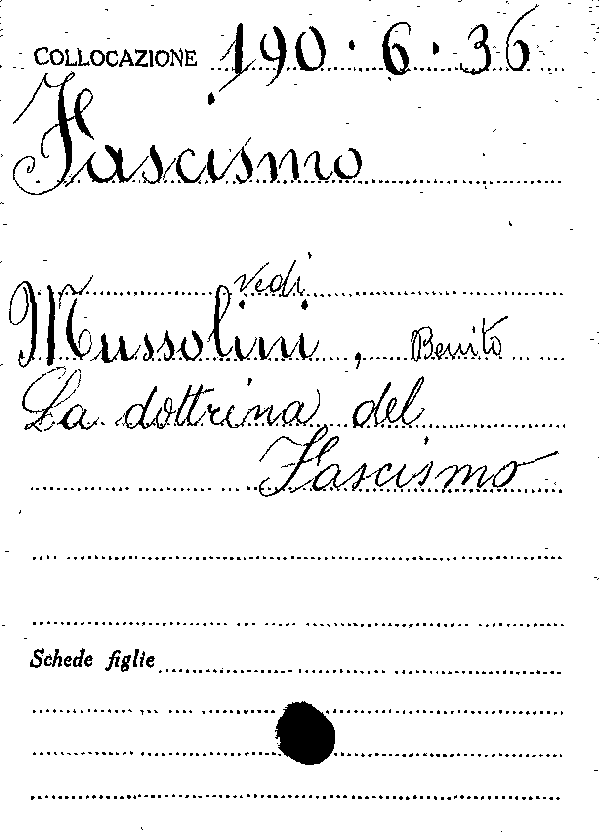 COLLOCAZIONE 190.6.36
Fascismo
vedi
Mussolini, Benito
La dottrina del
Fascismo
Schede figlie